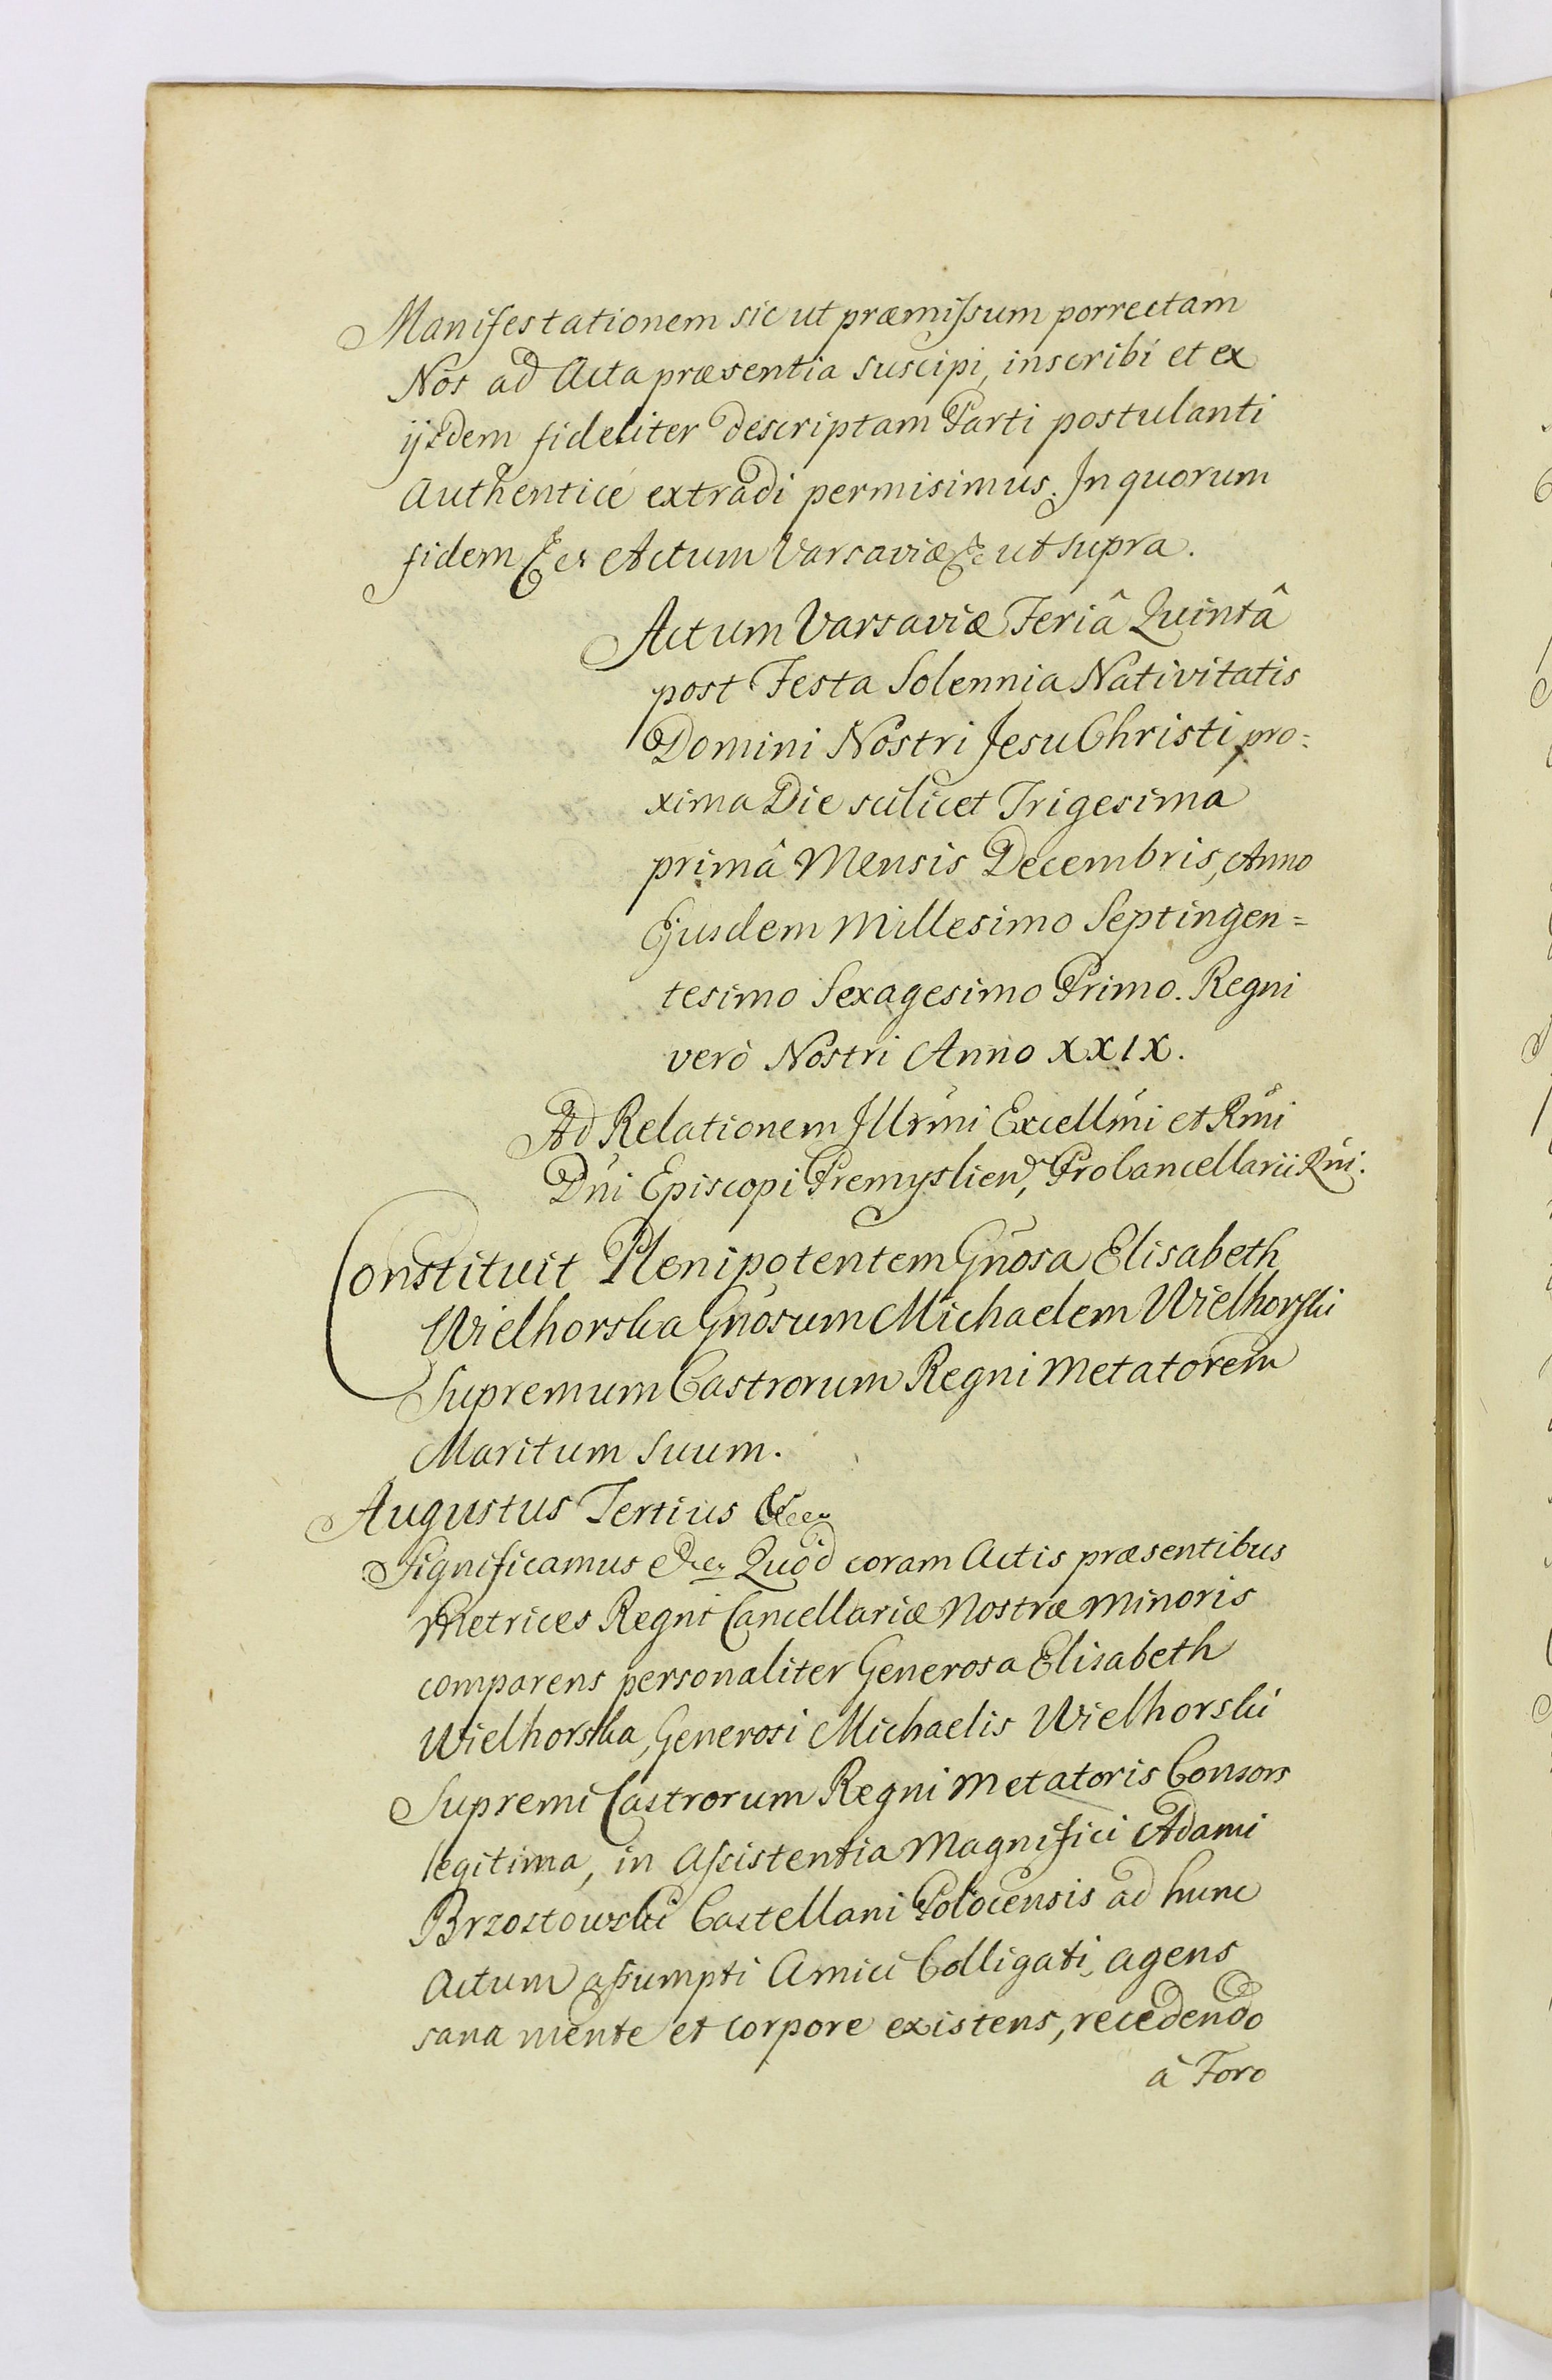 Manifestationem sic ut præmissum porrectam
Nos ad Acta præsentia suscipi, inscribi et ex
ijsdem fideliter descriptam Parti postulanti
Authenticè extradi permisimus. In quorum
fidem &c. Actum Varsaviæ &c ut supra.
Actum Varsaviæ Feriâ Quintâ
post Festa Solennia Nativitatis
Domini Nostri Jesu Christi pro=
xima Die scilicet Trigesima
primâ Mensis Decembris, Anno
Ejusdem Millesimo Septingen=
tesimo Sexagesimo Primo. Regni
verò Nostri Anno XXIX.
Ad Relationem Illrmi Excellmi et Rmi
Dni Episcopi Premyslien, ProCancellarii Rni.
Constituit Plenipotentem Gnosa Elisabeth
Wielhorska Gnosum Michaelem Wielhorski
Supremum Castrorum Regni Metatorem
Maritum Suum.
Augustus Tertius &c.
Significamus &c. Quod coram Actis præsentibus
Metrices Regni Cancellariæ Nostræ Minoris
comparens personaliter Generosa Elisabeth
Wielhorska, Generosi Michaelis Wielhorski
Supremi Castrorum Regni Metatoris Consors
legitima, in Assistentia Magnifici Adami
Brzostowski Castellani Polocensis ad hunc
Actum assumpti Amici Colligati, agens
sana mente et corpore existens, recedendo
à Foro